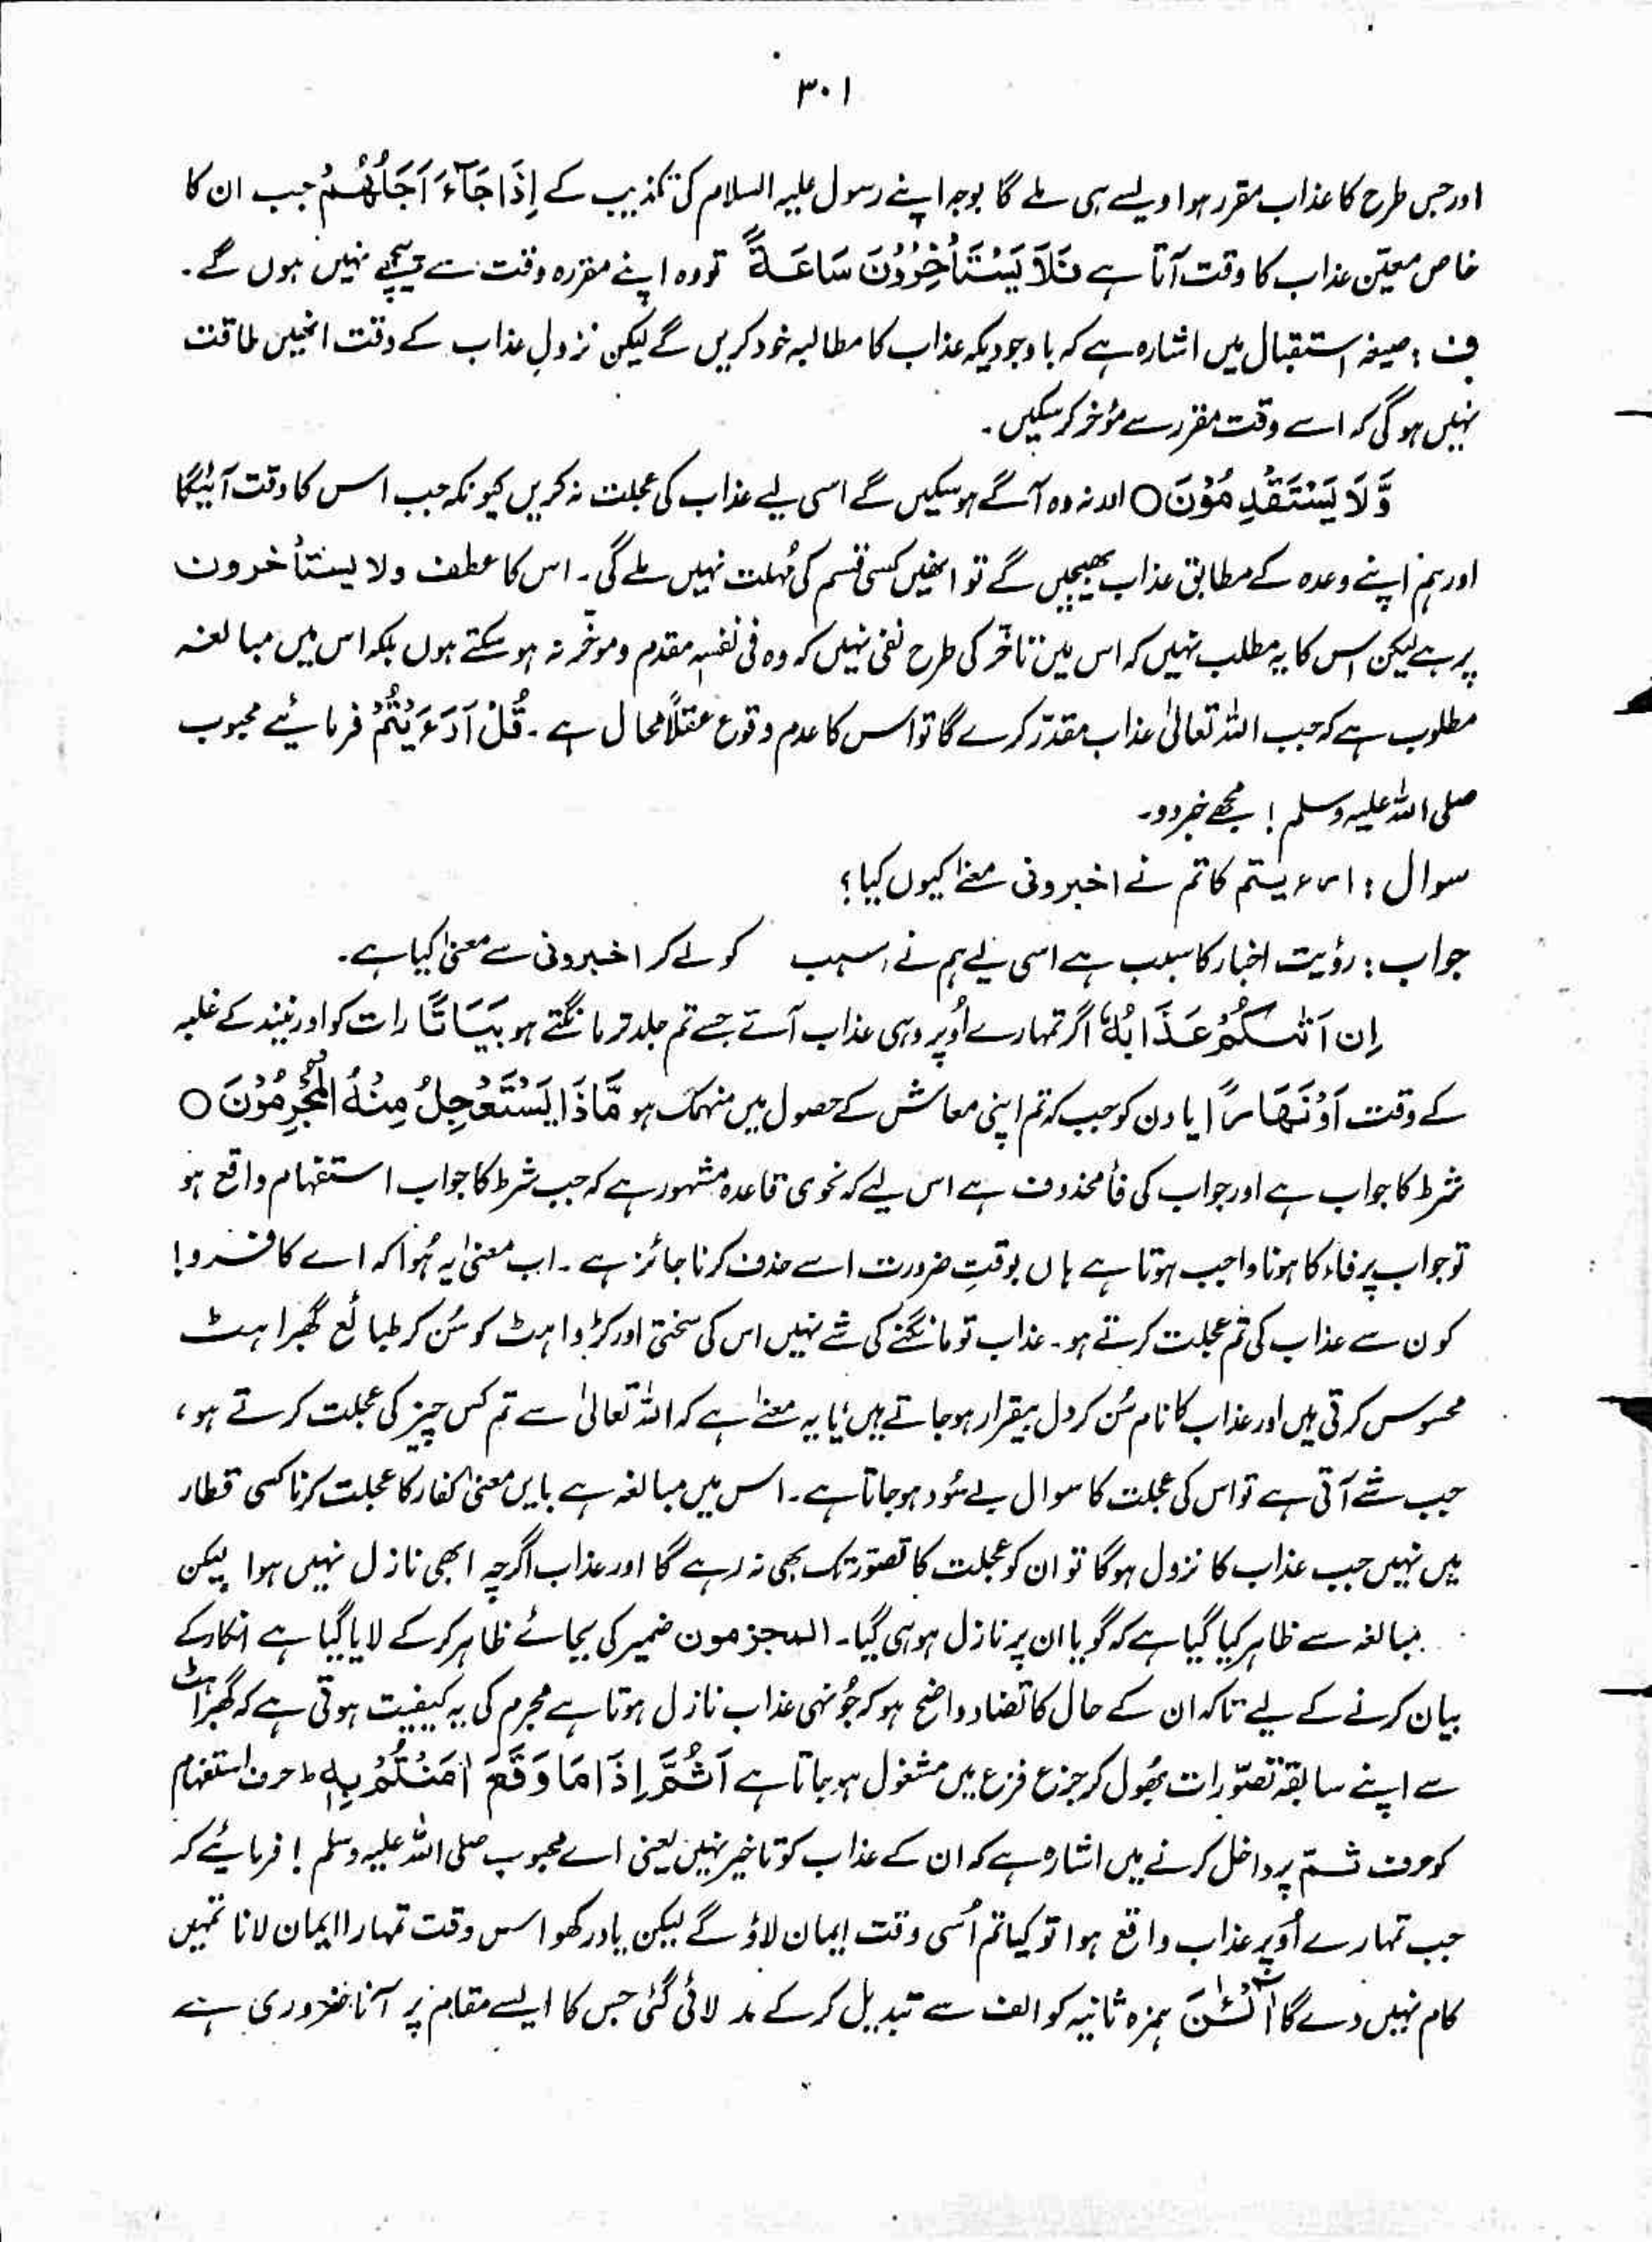 ۳۰۱
اور جس طرح کا عذاب مقرر ہوا ویسے ہی ملے گا بوجہ اپنے رسول علیہ السلام کی تکذیب کے اِذَا جَآءَ اَجَلُهُمْ جب ان کا
خاص معیّن عذاب کا وقت آتا ہے فَلَا يَسْتَأْخِرُوْنَ سَاعَةً تو وہ اپنے مقررہ وقت سے پیچھے نہیں ہوں گے۔
ف : صیغہ استقبال میں اشارہ ہے کہ باوجودیکہ عذاب کا مطالبہ خود کریں گے لیکن نزولِ عذاب کے وقت انھیں طاقت
نہیں ہوگی کہ اسے وقت مقرر سے مؤخر کرسکیں۔
وَّلَا يَسْتَقْدِمُوْنَ○ اور نہ وہ آگے ہوسکیں گے اسی لیے عذاب کی عجلت نہ کریں کیونکہ جب اس کا وقت آئیگا
اور ہم اپنے وعدہ کے مطابق عذاب بھیجیں گے تو انھیں کسی قسم کی مُہلت نہیں ملے گی۔ اس کا عطف ولا یستأخرون
پر ہے لیکن اس کا یہ مطلب نہیں کہ اس میں تاخّر کی طرح نفی نہیں کہ وہ فی نفسہٖ مقدم و موخّر نہ ہوسکتے ہوں بلکہ اس میں مبالغہ
مطلوب ہے کہ جب اللہ تعالیٰ عذاب مقدّر کرے گا تو اس کا عدم وقوع عقلاً محال ہے۔ قُلْ اَرَءَيْتُمْ فرمائیے محبوب
صلی اللہ علیہ وسلم ! مجھے خبر دو۔
سوال : ارءیتم کا تم نے اخبرونی معنےٰ کیوں کیا؟
جواب : رؤیت اخبار کا سبب ہے اسی لیے ہم نے سبب کو لے کر اخبرونی سے معنیٰ کیا ہے۔
اِن اَتٰىكُمْ عَذَابُهٗ اگر تمہارے اُوپر وہی عذاب آئے جسے تم جلد تر مانگتے ہو بَيَاتًا رات کو اور نیند کے غلبہ
کے وقت اَوْ نَهَارًا یا دن کو جب کہ تم اپنی معاش کے حصول میں منہمک ہو مَّاذَا يَسْتَعْجِلُ مِنْهُ الْمُجْرِمُوْنَ○
شرط کا جواب ہے اور جواب کی فأ محذوف ہے اس لیے کہ نحوی قاعدہ مشہور ہے کہ جب شرط کا جواب استفہام واقع ہو
تو جواب پر فاء کا ہونا واجب ہوتا ہے ہاں بوقتِ ضرورت اسے حذف کرنا جائز ہے۔ اب معنیٰ یہ ہُوا کہ اے کافرو!
کون سے عذاب کی تم عجلت کرتے ہو۔ عذاب تو مانگنے کی شے نہیں اس کی سختی اور کڑواہٹ کو سُن کر طبائع گھبراہٹ
محسوس کرتی ہیں اور عذاب کا نام سُن کر دل بیقرار ہوجاتے ہیں یا یہ معنےٰ ہے کہ اللہ تعالیٰ سے تم کس چیز کی عجلت کرتے ہو،
جب شے آتی ہے تو اس کی عجلت کا سوال بے سُود ہوجاتا ہے۔ اس میں مبالغہ ہے بایں معنیٰ کفار کا عجلت کرنا کسی قطار
میں نہیں جب عذاب کا نزول ہوگا تو ان کو عجلت کا تصوّر تک بھی نہ رہے گا اور عذاب اگرچہ ابھی نازل نہیں ہوا لیکن
مبالغہ سے ظاہر کیا گیا ہے کہ گویا ان پر نازل ہو ہی گیا۔ المجرمون ضمیر کی بجائے ظاہر کرکے لایا گیا ہے انکار کے
بیان کرنے کے لیے تاکہ ان کے حال کا تضاد واضح ہو کہ جُونہی عذاب نازل ہوتا ہے مجرم کی یہ کیفیت ہوتی ہے کہ گھبراہٹ
سے اپنے سابقہ تصوّرات بھُول کر جزع فزع میں مشغول ہوجاتا ہے اَثُمَّ اِذَا مَا وَقَعَ اٰمَنْتُمْ بِهٖ ط حرف استفہام
کو حرف ثمّ پر داخل کرنے میں اشارہ ہے کہ ان کے عذاب کو تاخیر نہیں یعنی اے محبوب صلی اللہ علیہ وسلم ! فرمائیے کہ
جب تمہارے اُوپر عذاب واقع ہوا تو کیا تم اُسی وقت ایمان لاؤ گے لیکن یاد رکھو اس وقت تمہارا ایمان لانا تمہیں
کام نہیں دے گا آٰلْـٰٔنَ ہمزہ ثانیہ کو الف سے تبدیل کرکے مد لائی گئی جس کا ایسے مقام پر آنا ضروری ہے